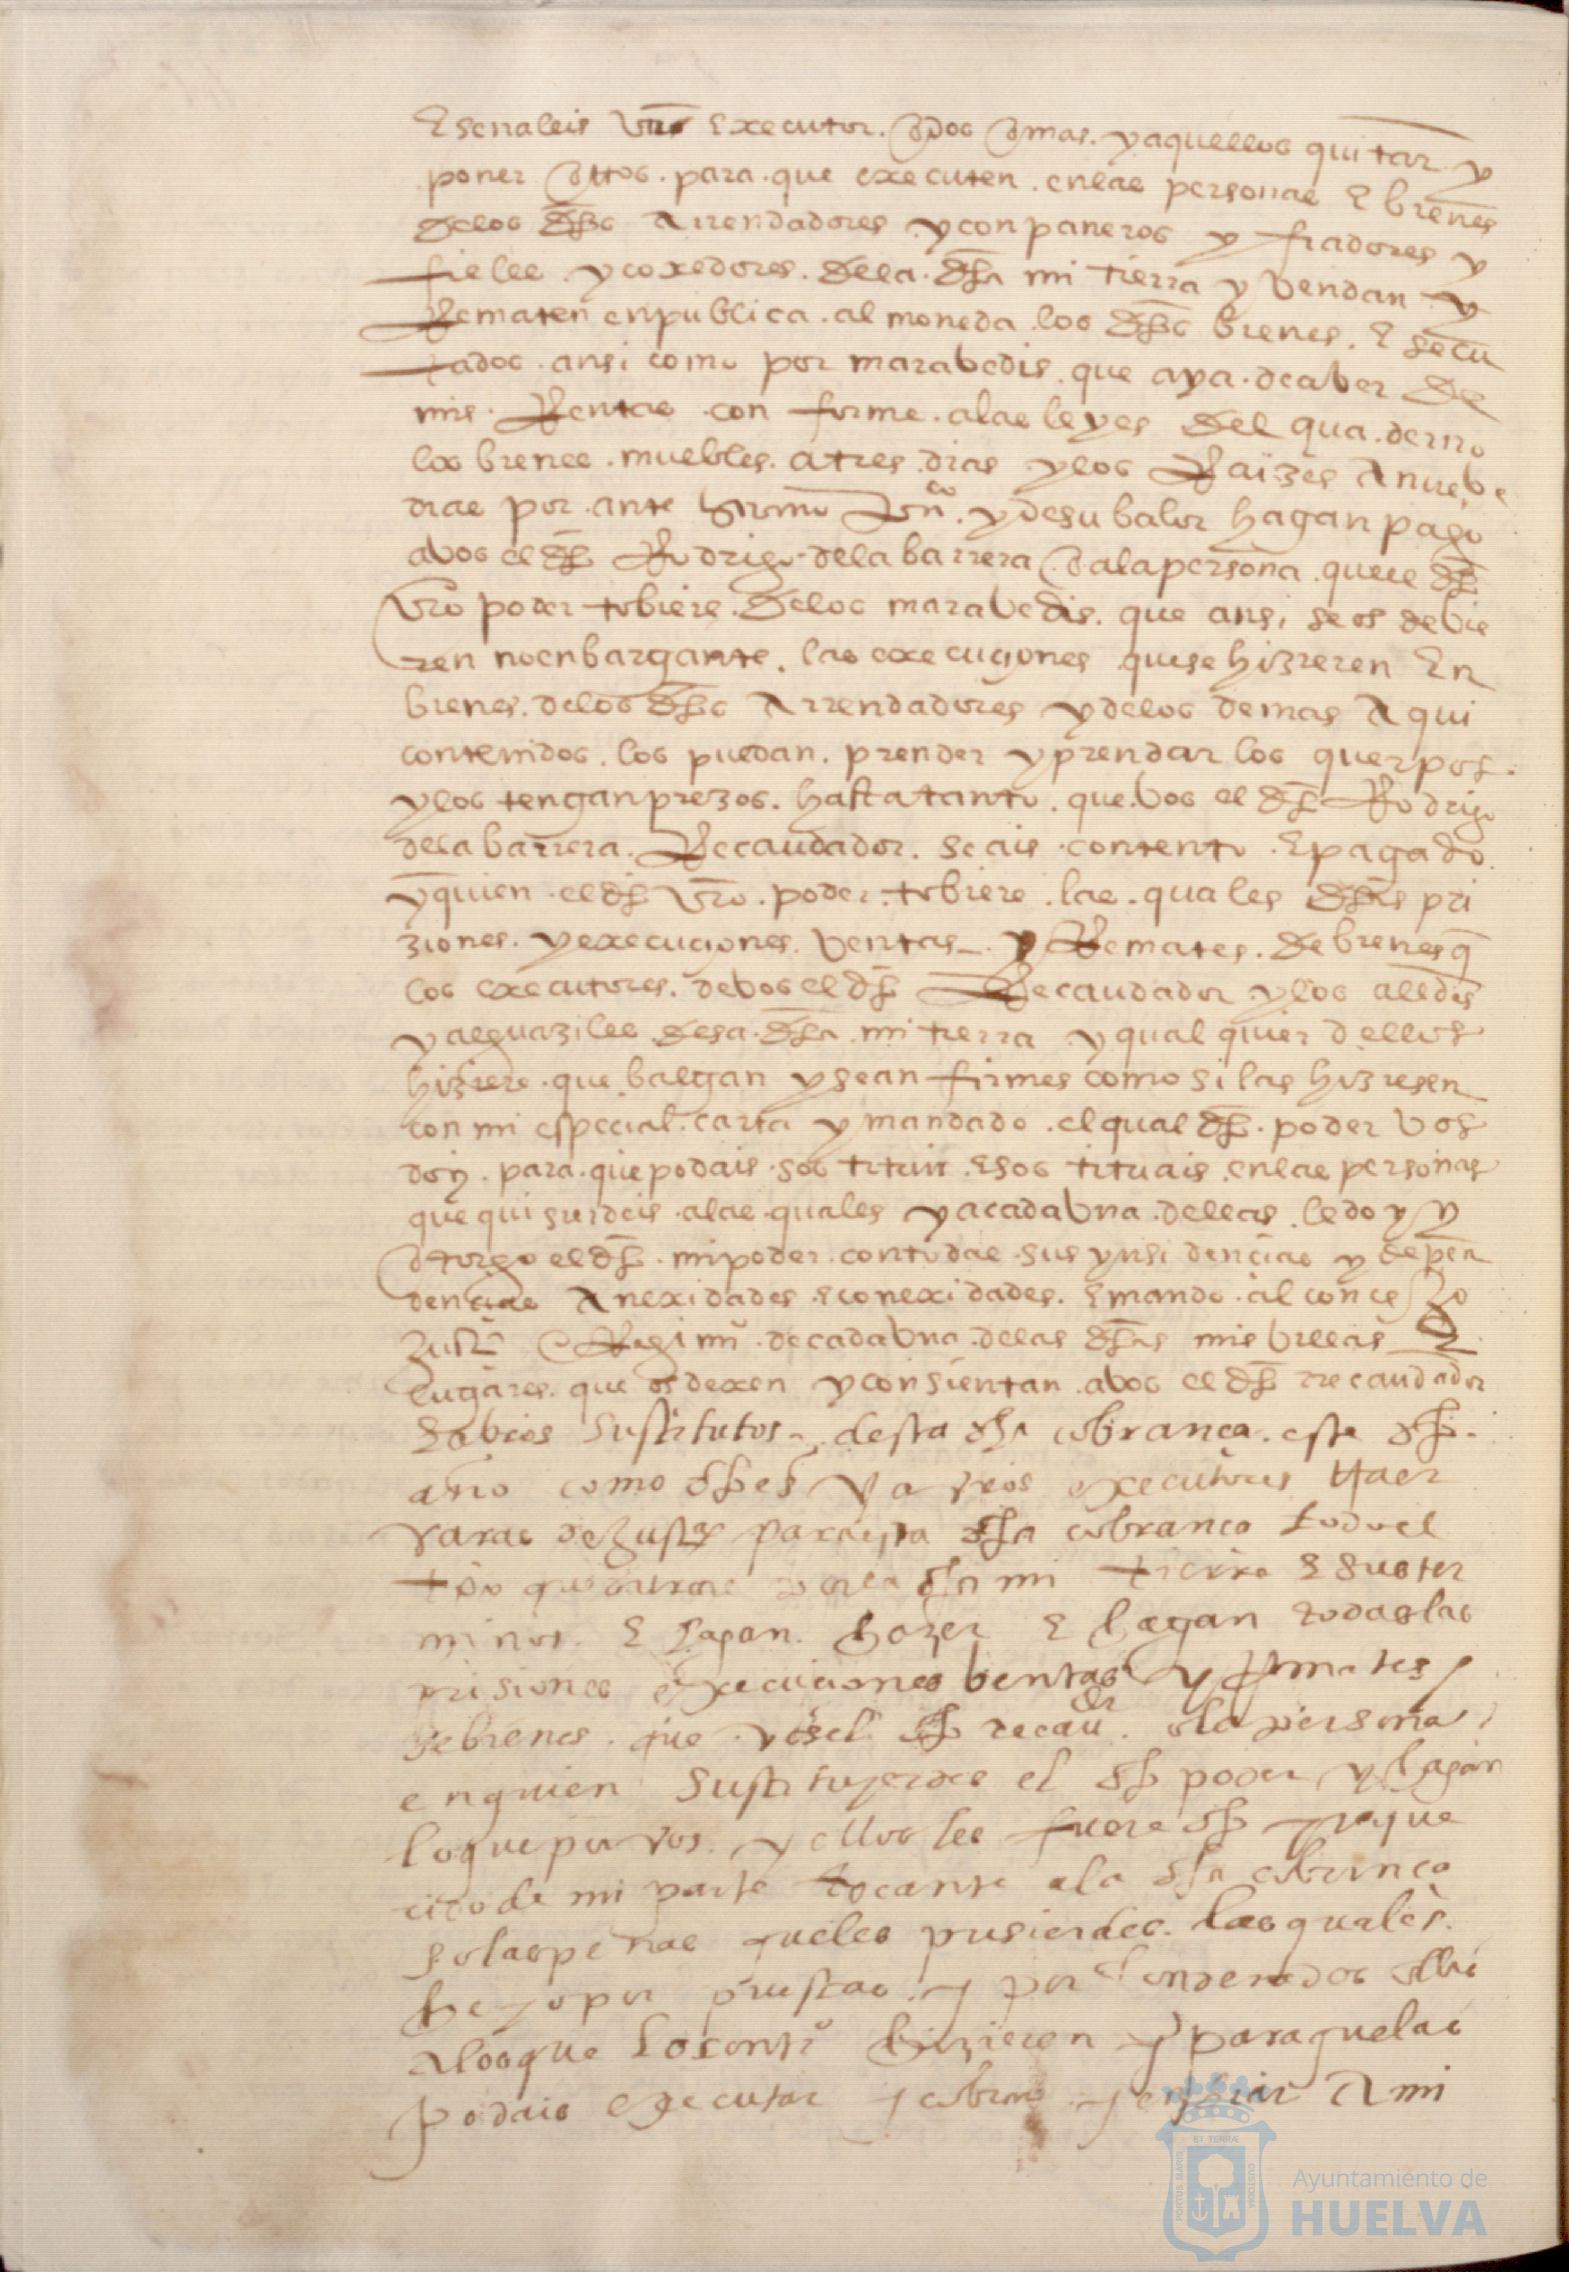 E senaleis vro executor . o dos o mas . y aquellos quitar y
poner o ttos . para . que executen . en las personas E bienes
de los dhos Arrendadores y conpaneros y fiadores y
fieles y coxedores . de la . dha mi tierra y vendan y
Rematen en publica . almoneda . los dhos bienes . E secu
tados . ansi como por marabedis . que aya . de aber de
mis . Rentas . con forme . a las leyes del qua . derno
los bienes . muebles . a tres . dias . y los Raizes A nuebe
dias por . ante . y de su balor hagan pago
a bos el dho Rodrigo de la barrera o a la persona . que el dho
vro poder tobiere . de los marabedis . que ansi se os debie
ren no enbargante . las execuciones que se hizieren En
bienes . de los dhos Arrendadores y de los demas A qui
contenidos . los puedan . prender y prendar los querpos .
y los tengan prezos . hasta tanto . que . bos el dho Rodrigo
de la barrera . Recaudador . seais . contento . E pagado
y quien . el dho vro . poder . tobiere . las . quales dhas pri
ziones . y execuciones . ventas . y Remates . de bienes q
los executores . de bos el dho Recaudador y los alldes
y alguaziles . desa . dha . mi tierra y qual quier dellos
hiziere . que balgan y sean firmes como si las hiziesen
con mi especial . carta y mandado . el qual dho . poder vos
doy . para . que podais . sos tituir . E sos tituais . en las personas
que quisierdeis . a las . quales y a cada vna . dellas . le doy y
otorgo el dho . mi poder . con todas . sus ynsi dencias y depen
dencias Anexidades . e conexidades . E mando . al conce jo
Justa E Regimi . de cada vna . de las dhas mis villas E
lugares . que os dexen y consientan . a bos el dho rrecaudador
E a bros sustitutos . desta dha cobranca . este dho .
año como dho es y a vros executores traer
varas de Justa para esta dha cobranca todo el
tpo que en la dha mi tierra E sus ter
minos . E hagan . hazer E hagan todas las
prisiones execuciones bentas y rremates
de bienes . que vos el dho recaudr . o la persona
en quien sustituyerdes el dho poder y hagan
lo que por vos . y ellos les fuere dho y rreque
rido de mi parte tocante a la dha cobranca
so las penas que les pusierdes . las quales
he yo por puestas . y por condenados ellas
a los que lo contro hizieren y para que las
podais executar y cobrar y enbiar A mi
ET TERRÆ
PORTUS MARIS
CUSTODIA
Ayuntamiento de
HUELVA